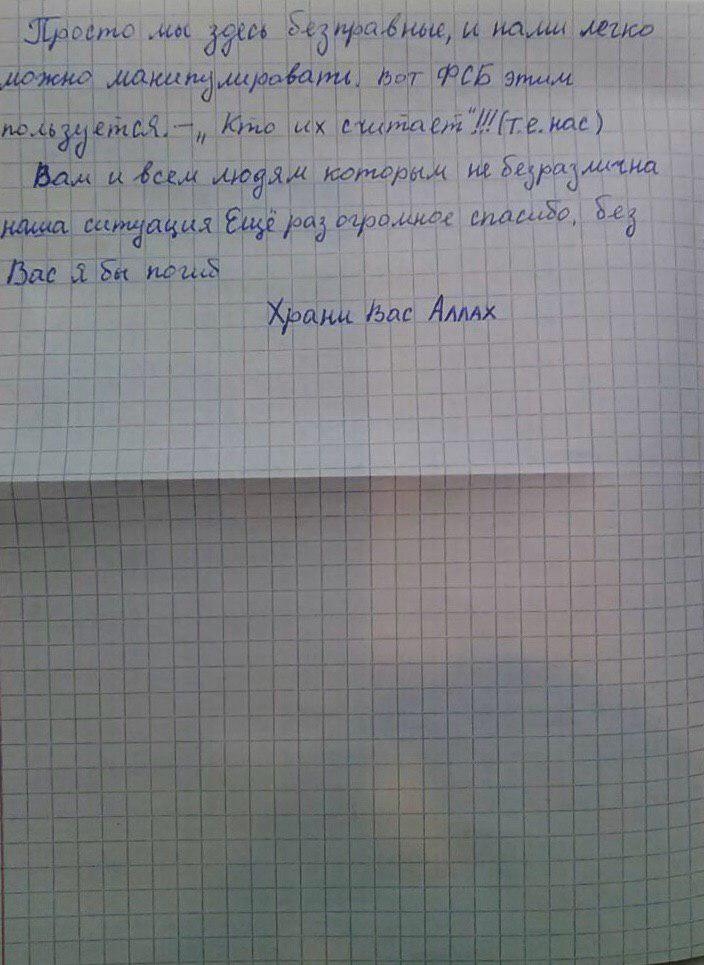 Просто мы здесь безправные, и нами легко
можно манипулировать. Вот ФСБ этим
пользуется. – „ Кто их считает"!!! (т.е. нас)
Вам и всем людям которым не безразлична
наша ситуация Ещё раз огромное спасибо, без
Вас я бы погиб
Храни Вас Аллах